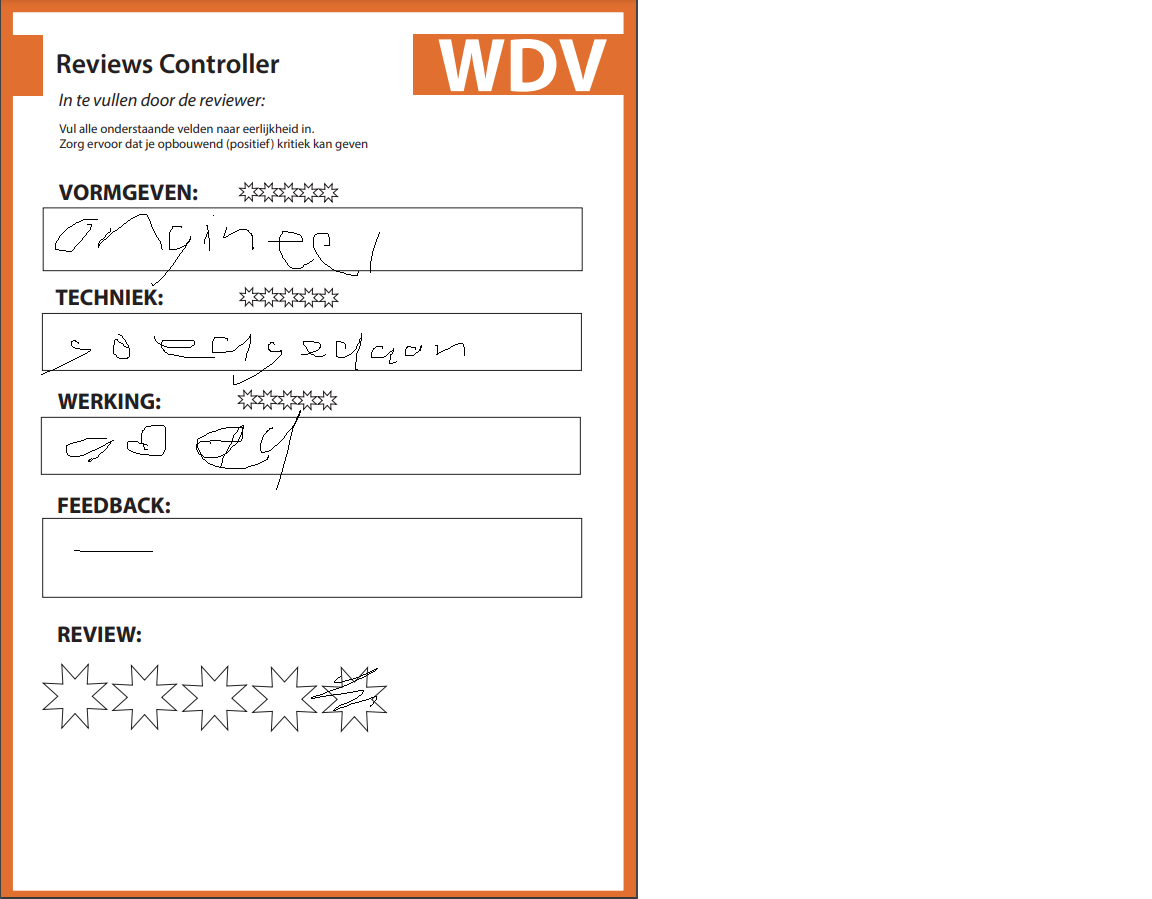 Reviews Controller
WDV
In te vullen door de reviewer:
Vul alle onderstaande velden naar eerlijkheid in.
Zorg ervoor dat je opbouwend (positief) kritiek kan geven
VORMGEVEN:
origineel
TECHNIEK:
goed gedaan
WERKING:
FEEDBACK:
REVIEW: